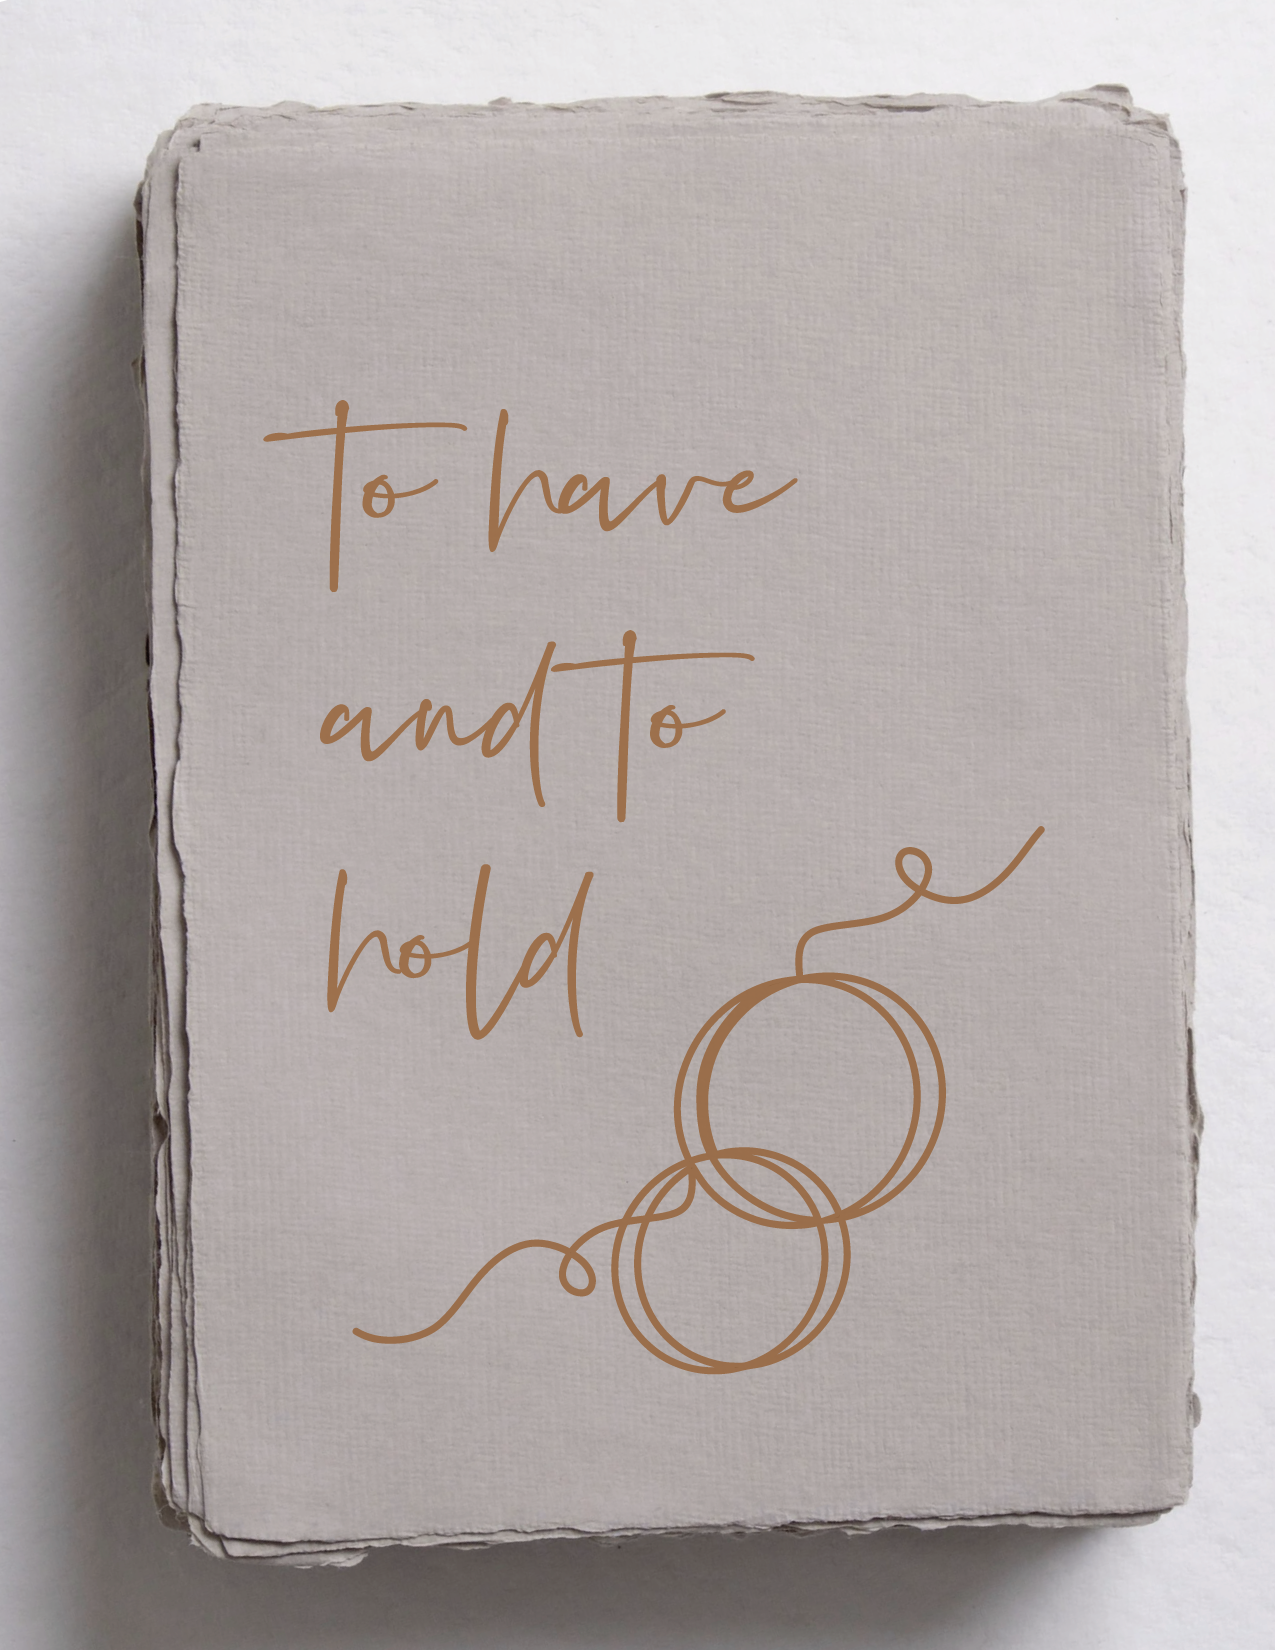 To have
and To
hold